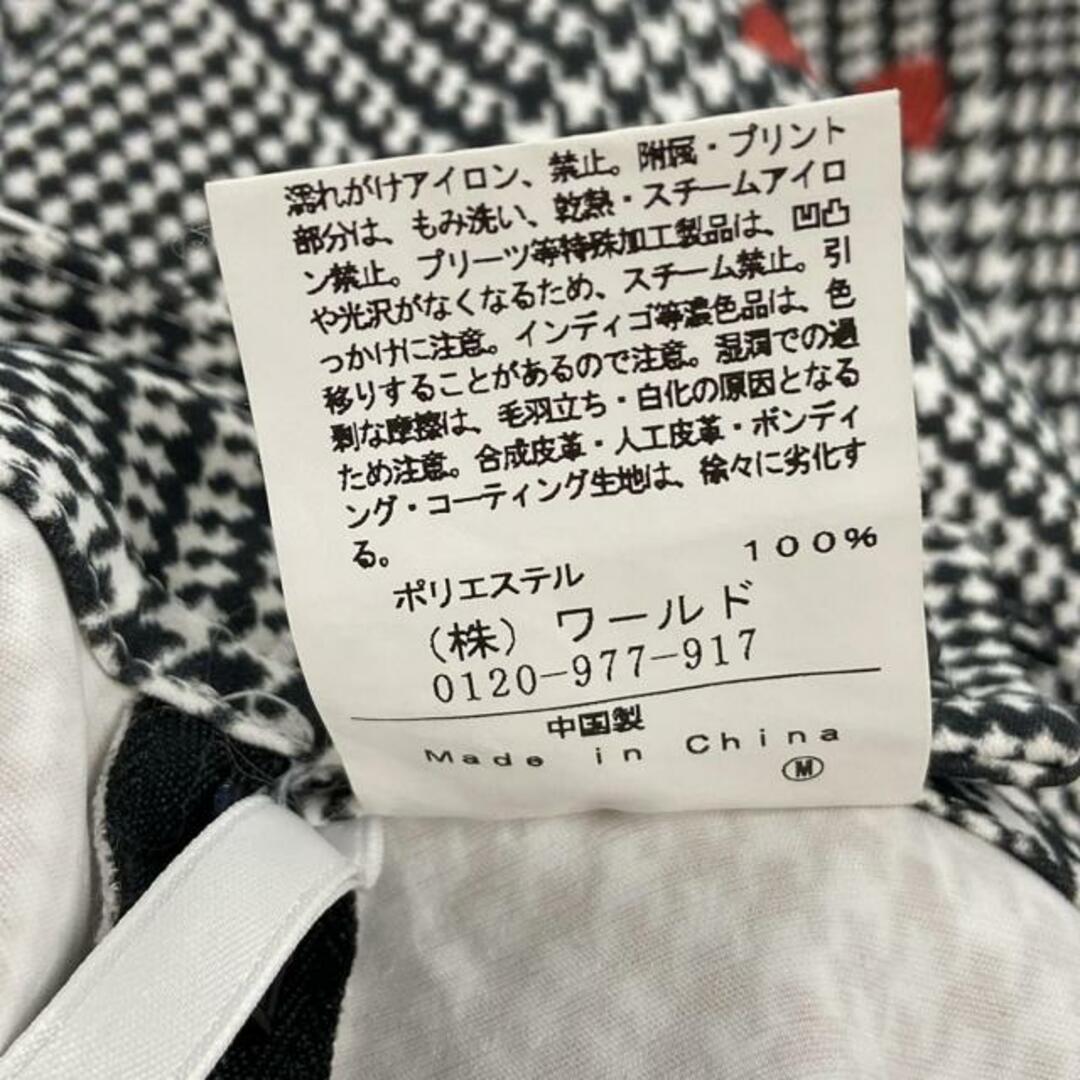 濡れがけアイロン、禁止。附属・プリント
部分は、もみ洗い、乾熱・スチームアイロ
ン禁止。プリーツ等特殊加工製品は、凹凸
や光沢がなくなるため、スチーム禁止。引
っかけに注意。インディゴ等濃色品は、色
移りすることがあるので注意。湿潤での過
剰な摩擦は、毛羽立ち・白化の原因となる
ため注意。合成皮革・人工皮革・ボンディ
ング・コーティング生地は、徐々に劣化す
る。
ポリエステル 100%
(株) ワールド
0120-977-917
中国製
Made in China
M